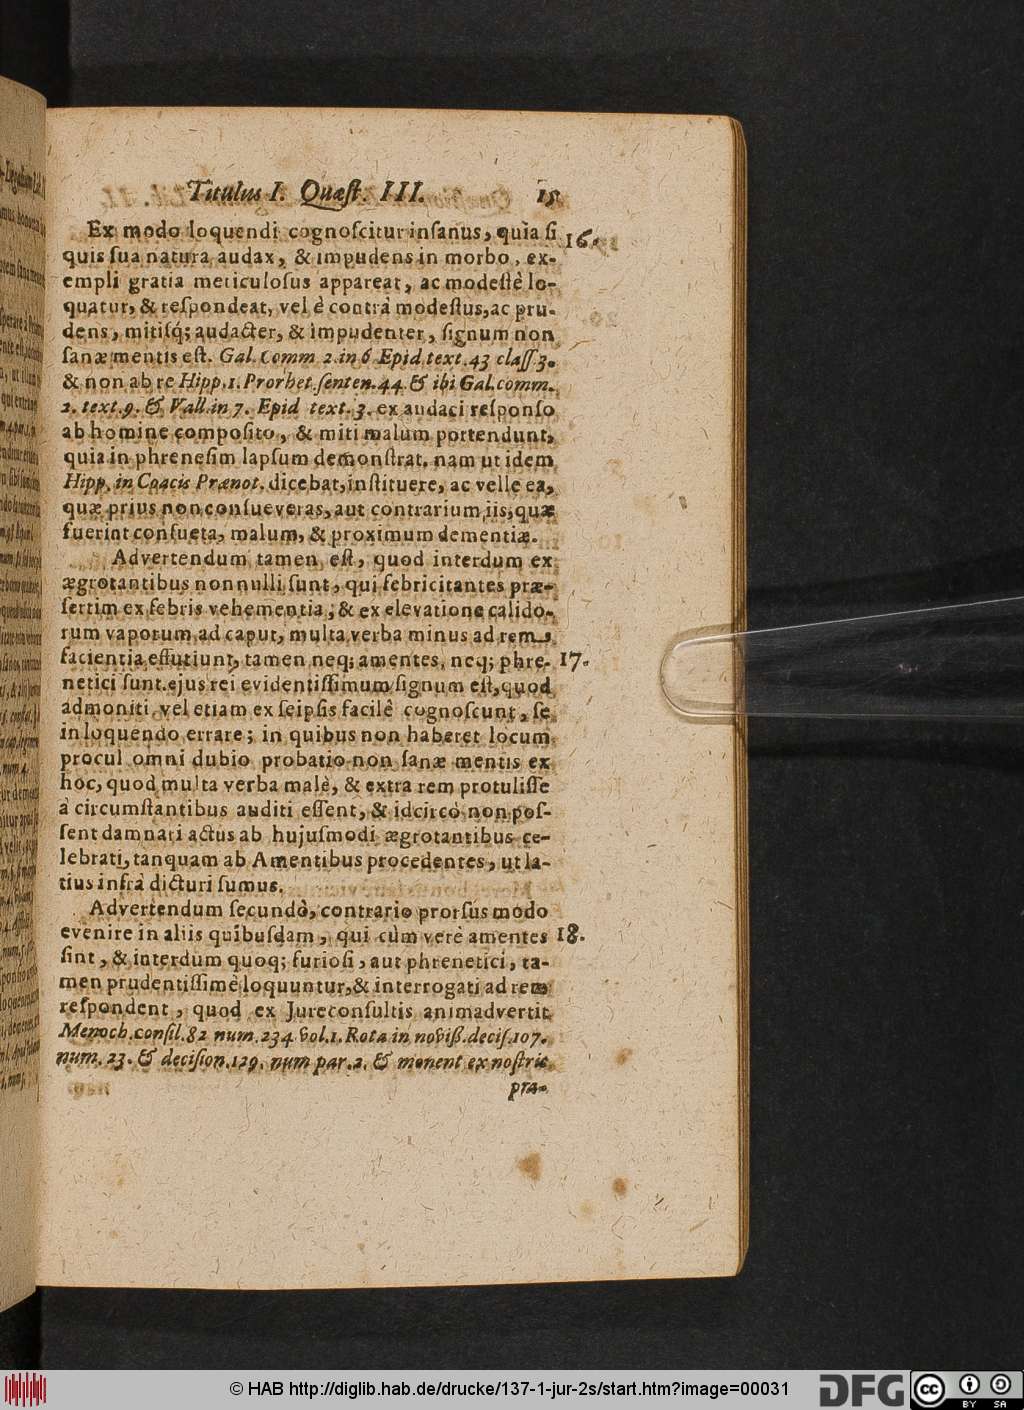 Titulus I. Quæſt. III. 15
Ex modo loquendi cognoſcitur inſanus, quia ſi 16.
quis ſua natura audax, & impudens in morbo, ex-
empli gratia meticuloſus appareat, ac modeſtè lo-
quatur, & reſpondeat, vel è contrà modeſtus, ac pru-
dens, mitiſq́; audacter, & impudenter, ſignum non
ſanæ mentis eſt. Gal. Comm 2. in 6 Epid. text. 43 claſſ 3.
& non ab re Hipp. 1. Prorhet. ſenten. 44. & ibi Gal. comm.
2. text. 9. & Vall. in 7. Epid text. 3. ex audaci reſponſo
ab homine compoſito, & miti malum portendunt,
quia in phreneſim lapſum demonſtrat, nam ut idem
Hipp. in Coacis Prænot. dicebat, inſtituere, ac velle ea,
quæ prius non conſueveras, aut contrarium iis, quæ
fuerint conſueta, malum, & proximum dementiæ.
Advertendum tamen eſt, quod interdum ex
ægrotantibus nonnulli ſunt, qui febricitantes præ-
ſertim ex febris vehementia, & ex elevatione calido-
rum vaporum ad caput, multa verba minus ad rem,
facientia effutiunt, tamen neq; amentes, neq; phre- 17.
netici ſunt. ejus rei evidentiſſimum ſignum eſt, quod
admoniti, vel etiam ex ſeipſis facilè cognoſcunt, ſe
in loquendo errare; in quibus non haberet locum
procul omni dubio probatio non ſanæ mentis ex
hoc, quod multa verba malè, & extra rem protuliſſe
à circumſtantibus auditi eſſent, & idcircò non poſ-
ſent damnari actus ab hujuſmodi ægrotantibus ce-
lebrati, tanquam ab Amentibus procedentes, ut la-
tius infrà dicturi ſumus.
Advertendum ſecundò, contrario prorſus modo
evenire in aliis quibuſdam, qui cùm verè amentes 18.
ſint, & interdum quoq; furioſi, aut phrenetici, ta-
men prudentiſſimè loquuntur, & interrogati ad rem
reſpondent, quod ex Jureconſultis animadvertit
Menoch. conſil. 82 num. 234 vol. 1. Rota in noviß. deciſ. 107.
num. 23. & deciſion. 129. num par. 2. & monent ex noſtris
pra-
© HAB http://diglib.hab.de/drucke/137-1-jur-2s/start.htm?image=00031
DFG
cc
BY SA